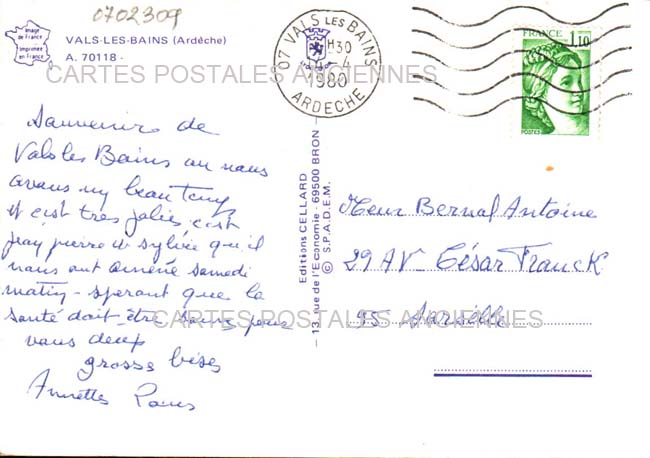 0702309
Image de France
Imprimée en France
VALS-LES-BAINS (Ardèche)
A. 70118
CARTES POSTALES ANCIENNES
07 VALS LES BAINS
H30
4
1980
ARDECHE
FRANCE
1,10
POSTES
Souvenirs de
Vals les Bains ou nous
avons un beau temp
et c'est tres jolies c'est
jean pierre et sylvie qu'il
nous ont amené samedi
matin - sperant que la
santé doit être bonne pour
vous deux
grosse bises
Annette
Editions CELLARD
13, rue de l'Economie - 69500 BRON
© S.P.A.D.E.M.
Bernal Antoine
29 AV - César Franck
95 Sarcelle
CARTES POSTALES ANCIENNES